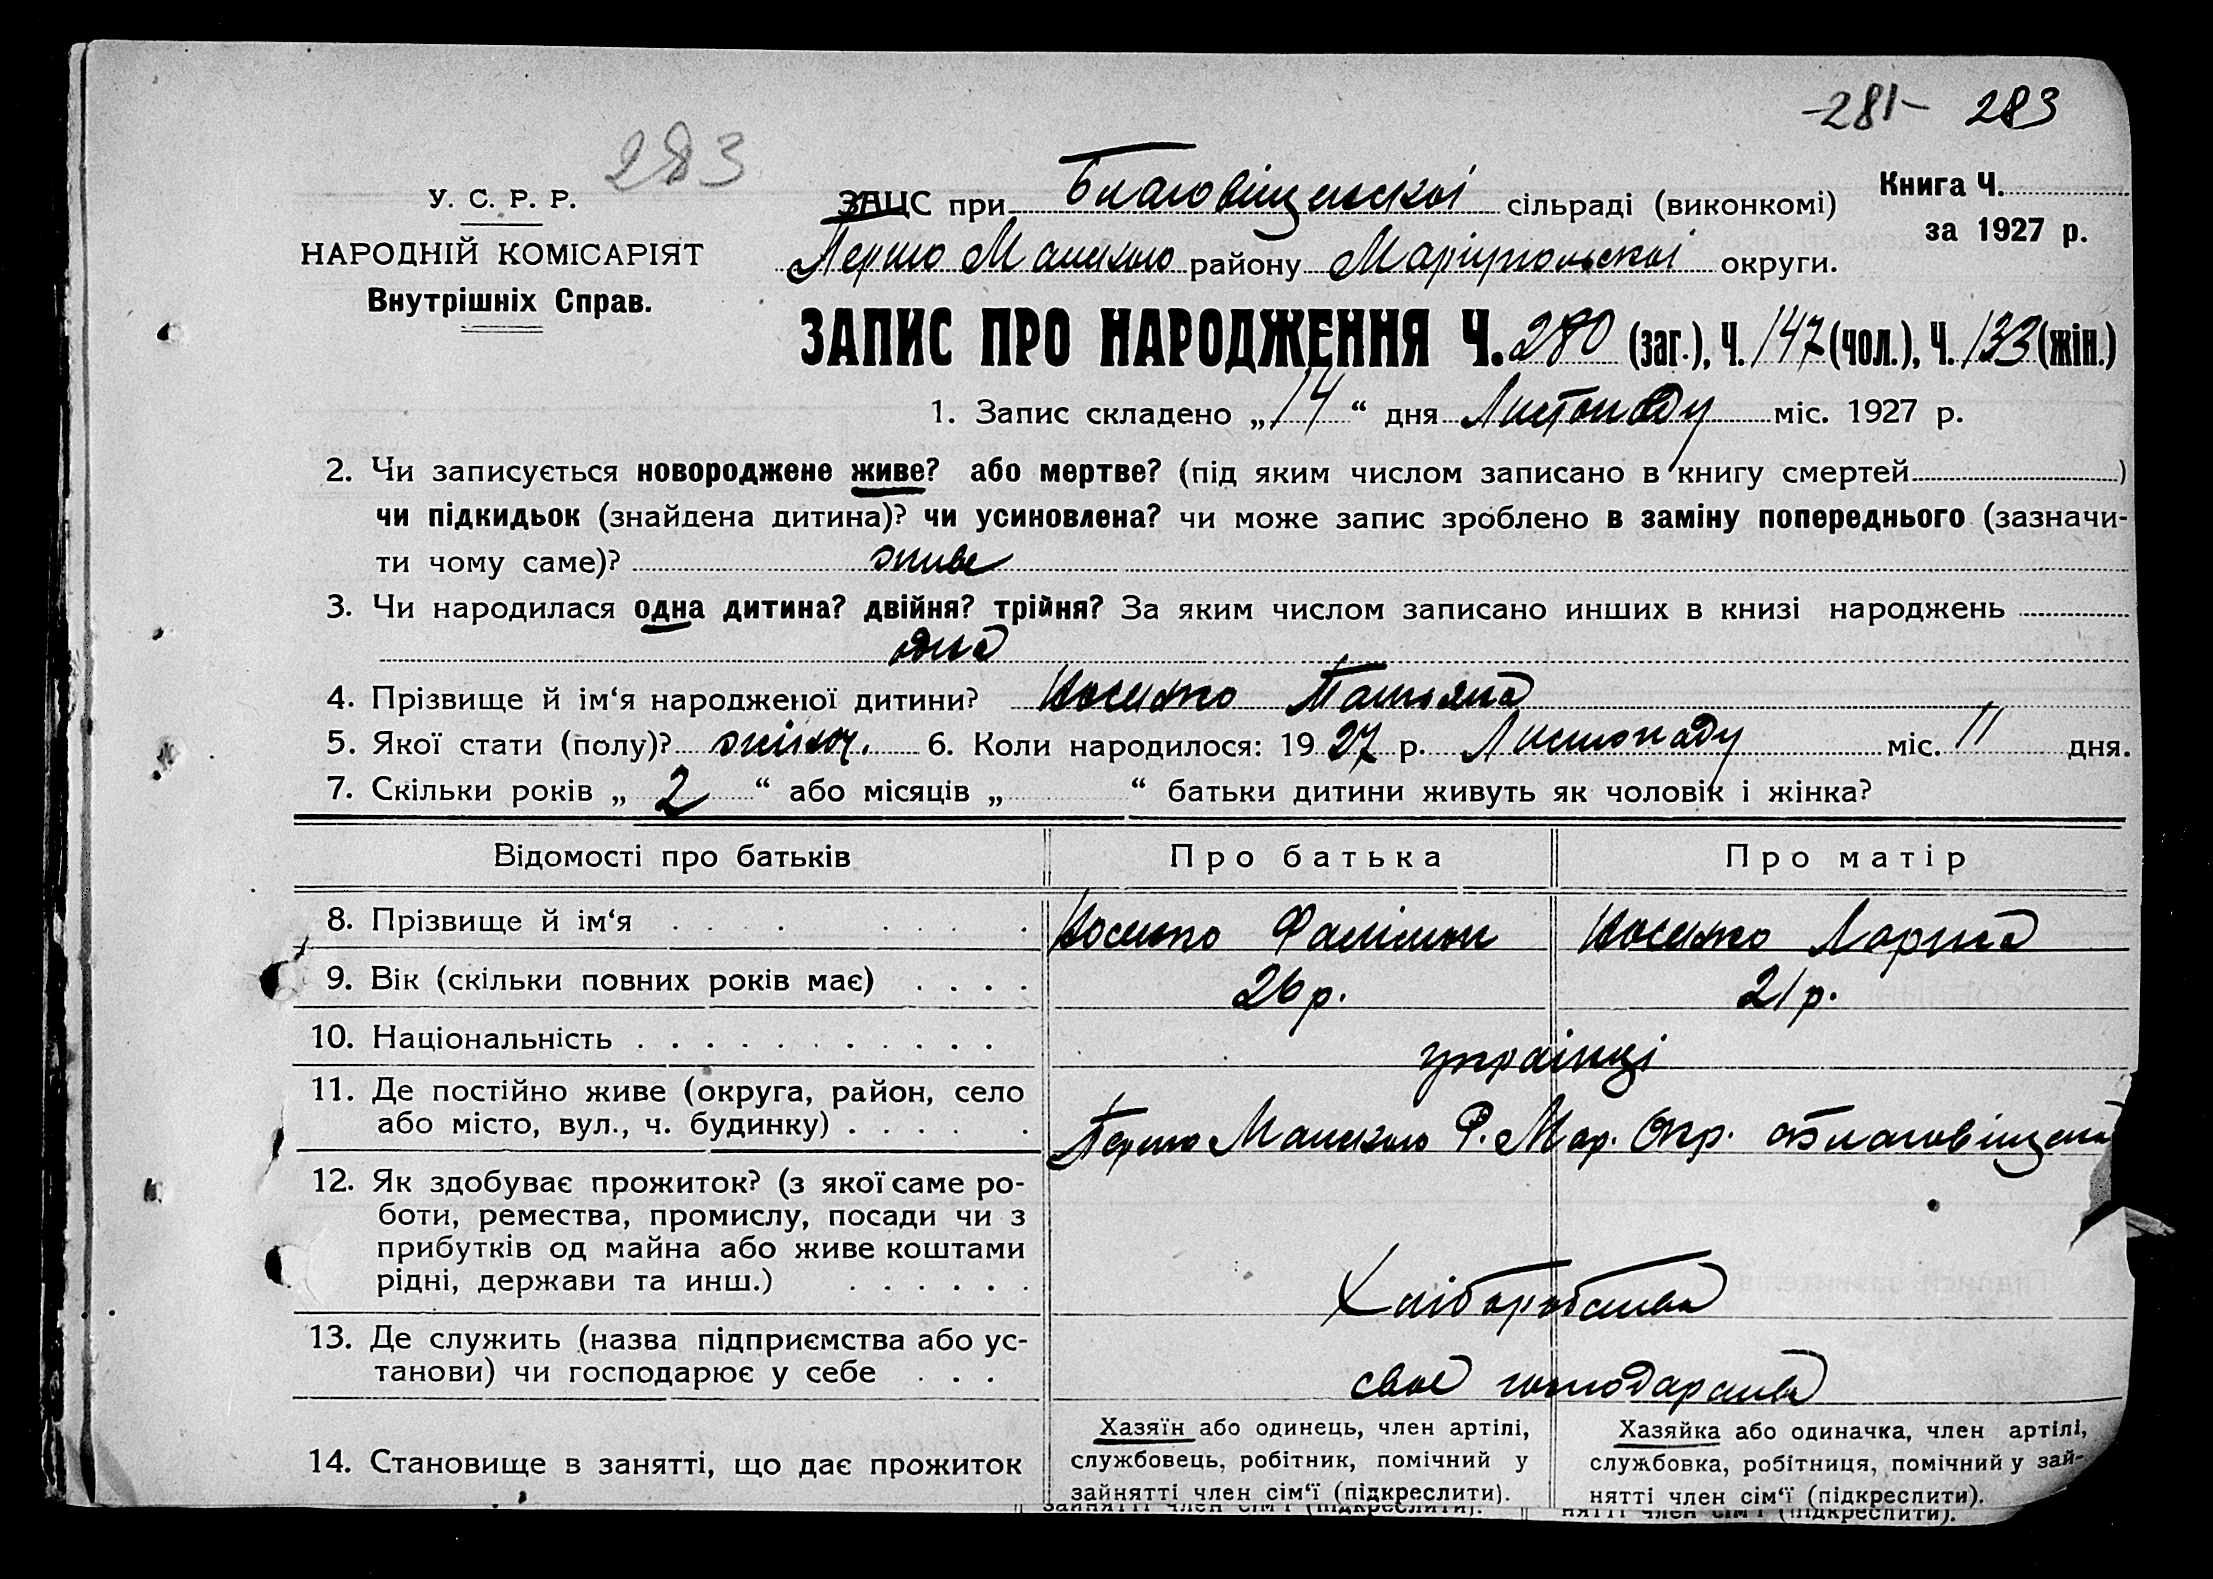 -281- 283
283
У. С. Р. Р.
НАРОДНІЙ КОМІСАРІЯТ
Внутрішніх Справ.
ЗАЦС при Благовіщенській сільраді (виконкомі)
Книга Ч.
за 1927 р.
Першо Манського району Маріупольської округи.
ЗАПИС ПРО НАРОДЖЕННЯ Ч. 280 (заг.), Ч. 147 (чол.), Ч. 133 (жін.)
1. Запис складено „14“ дня Листопаду міс. 1927 р.
2. Чи записується новороджене живе? або мертве? (під яким числом записано в книгу смертей)
чи підкидьок (знайдена дитина)? чи усиновлена? чи може запис зроблено в заміну попереднього (зазначи-
ти чому саме)? живе
3. Чи народилася одна дитина? двійня? трійня? За яким числом записано инших в книзі народжень
одна
4. Прізвище й ім‘я народженої дитини? Носенко Татьяна
5. Якої стати (полу)? жіноч. 6. Коли народилося: 1927 р. Листопаду міс. 11 дня.
7. Скільки років „2“ або місяців „ “ батьки дитини живуть як чоловік і жінка?
Відомості про батьків Про батька Про матір
8. Прізвище й ім‘я . . . . . . . Носенко Филімон Носенко Марина
9. Вік (скільки повних років має) . . . . 26 р. 21 р.
10. Національність . . . . . . . . . . . українці
11. Де постійно живе (округа, район, село
або місто, вул., ч. будинку) . . . . . Першо Манського Р. Мар. Окр. с Благовіщена
12. Як здобуває прожиток? (з якої саме ро-
боти, ремества, промислу, посади чи з
прибутків од майна або живе коштами
рідні, держави та инш.) . . . . . . Хліборобства
13. Де служить (назва підприємства або ус-
танови) чи господарює у себе . . . своє господарства
14. Становище в занятті, що дає прожиток
Хазяїн або одинець, член артілі,
службовець, робітник, помічний у
зайнятті член сім‘ї (підкреслити).
Хазяйка або одиначка, член артілі,
службовка, робітниця, помічний у зай-
нятті член сім‘ї (підкреслити).
зайнятті член сім‘ї (підкреслити). нятті член сім‘ї (підкреслити).